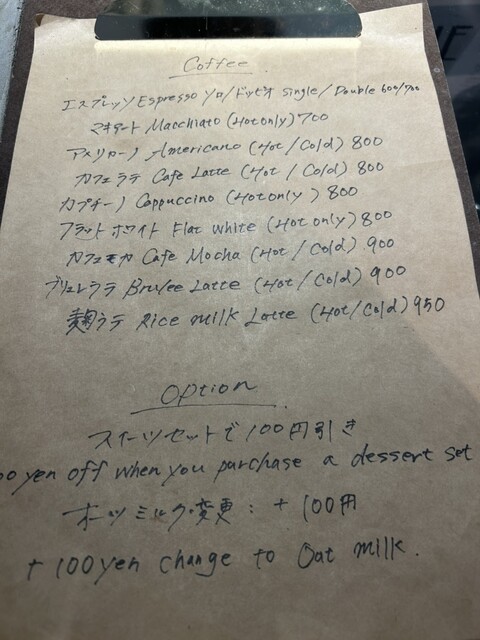 Coffee
エスプレッソ Espresso ソロ/ドッピオ single / Double 600/700
マキアート Macchiato (Hot only) 700
アメリカーノ Americano (Hot / Cold) 800
カフェラテ Cafe Latte (Hot / Cold) 800
カプチーノ Cappuccino (Hot only) 800
フラットホワイト Flat white (Hot only) 800
カフェモカ Cafe Mocha (Hot / Cold) 900
ブリュレラテ Brulee Latte (Hot / Cold) 900
麹ラテ Rice milk Latte (Hot / Cold) 950
Option
スイーツセットで 100円引き
00 yen off when you purchase a dessert set
オーツミルク変更: + 100円
+ 100 yen change to Oat milk.